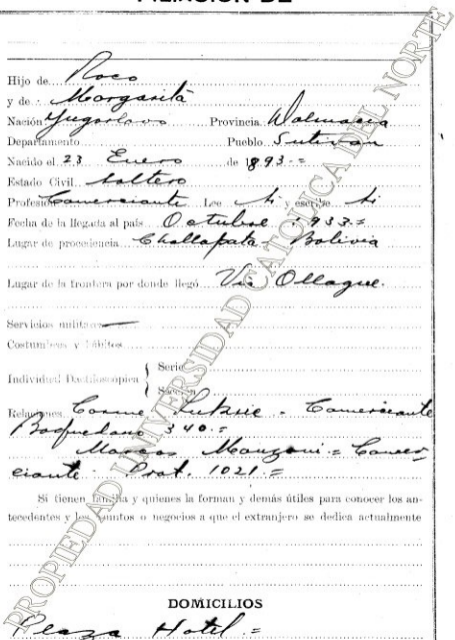 FILIACIÓN DE
Hijo de Roco
y de Margarita
Nación Yugoslavo Provincia Dalmacia
Departamento Pueblo Sutivan
Nacido el 23 Enero de 1893.=
Estado Civil Soltero
Profesión Comerciante Lee Si y escribe Si
Fecha de la llegada al país Octubre 1933=
Lugar de procedencia Challapata Bolivia
Lugar de la frontera por donde llegó Via Ollague.
Servicios militares
Costumbres y hábitos
Individual Dactiloscópica { Serie
Sección
Relaciones Cosme Luksic - Comerciante
Baquedano 340.=
Marcos Mangoni = Comer-
ciante. Prat. 1021.=
Si tienen familia y quienes la forman y demás útiles para conocer los an-
tecedentes y los asuntos o negocios a que el extranjero se dedica actualmente
DOMICILIOS
Plaza Hotel.=
PROPIEDAD UNIVERSIDAD CATOLICA DEL NORTE